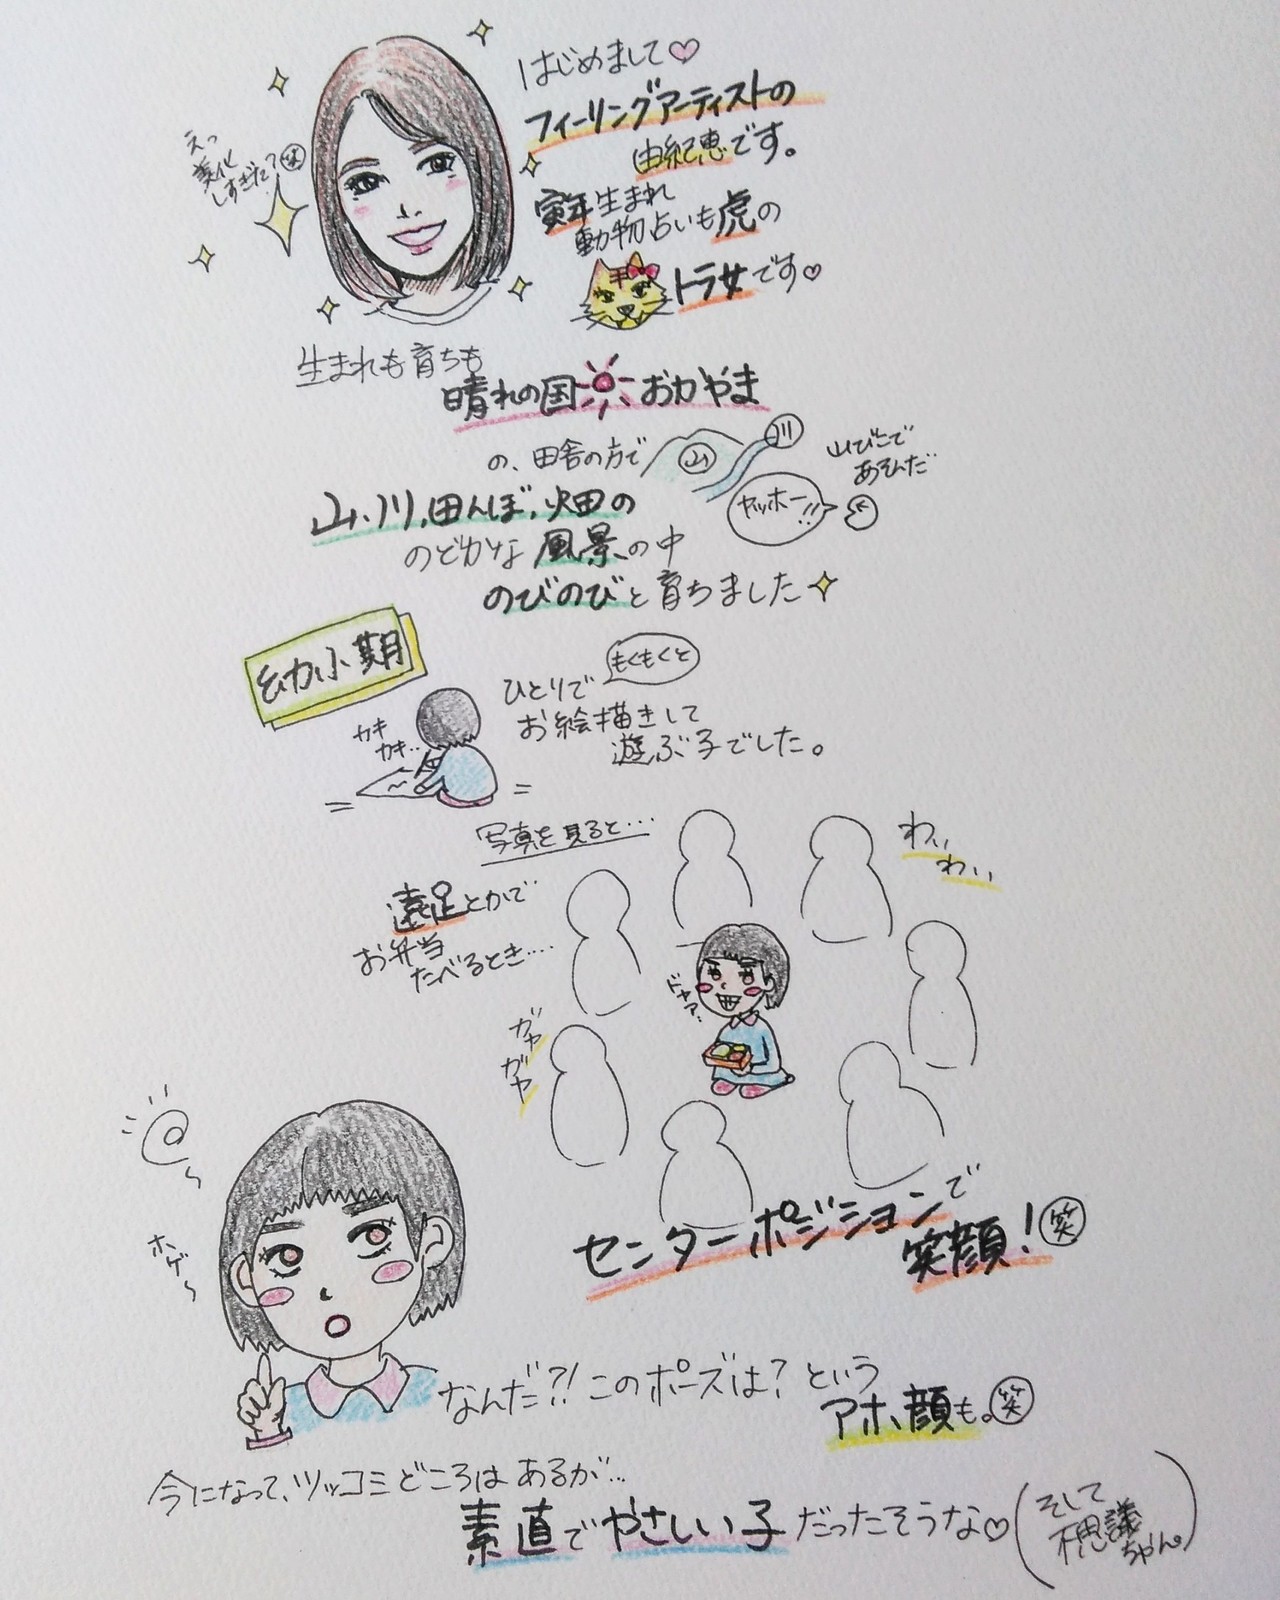 はじめまして♡
フィーリングアーティストの
由紀恵です。
えっ
美化
しすぎた?笑
寅年生まれ
動物占いも虎の
トラ女です♡
生まれも育ちも
晴れの国 おかやま
の、田舎の方で
山
川
山びこで
あそんだ
ヤッホー!!
山、川、田んぼ、畑の
のどかな風景の中
のびのびと育ちました
幼少期
もくもくと
ひとりで
お絵描きして
遊ぶ子でした。
カキ
カキ..
写真を見ると…
わぃ
わぃ
遠足とかで
お弁当
たべるとき….
ガヤ
ガヤ
センターポジションで
笑顔!笑
ホゲ〜
なんだ?!このポーズは?という
アホ顔も。笑
今になって、ツッコミどころはあるが…
素直でやさしい子だったそうな♡
(そして
不思議
ちゃん。)